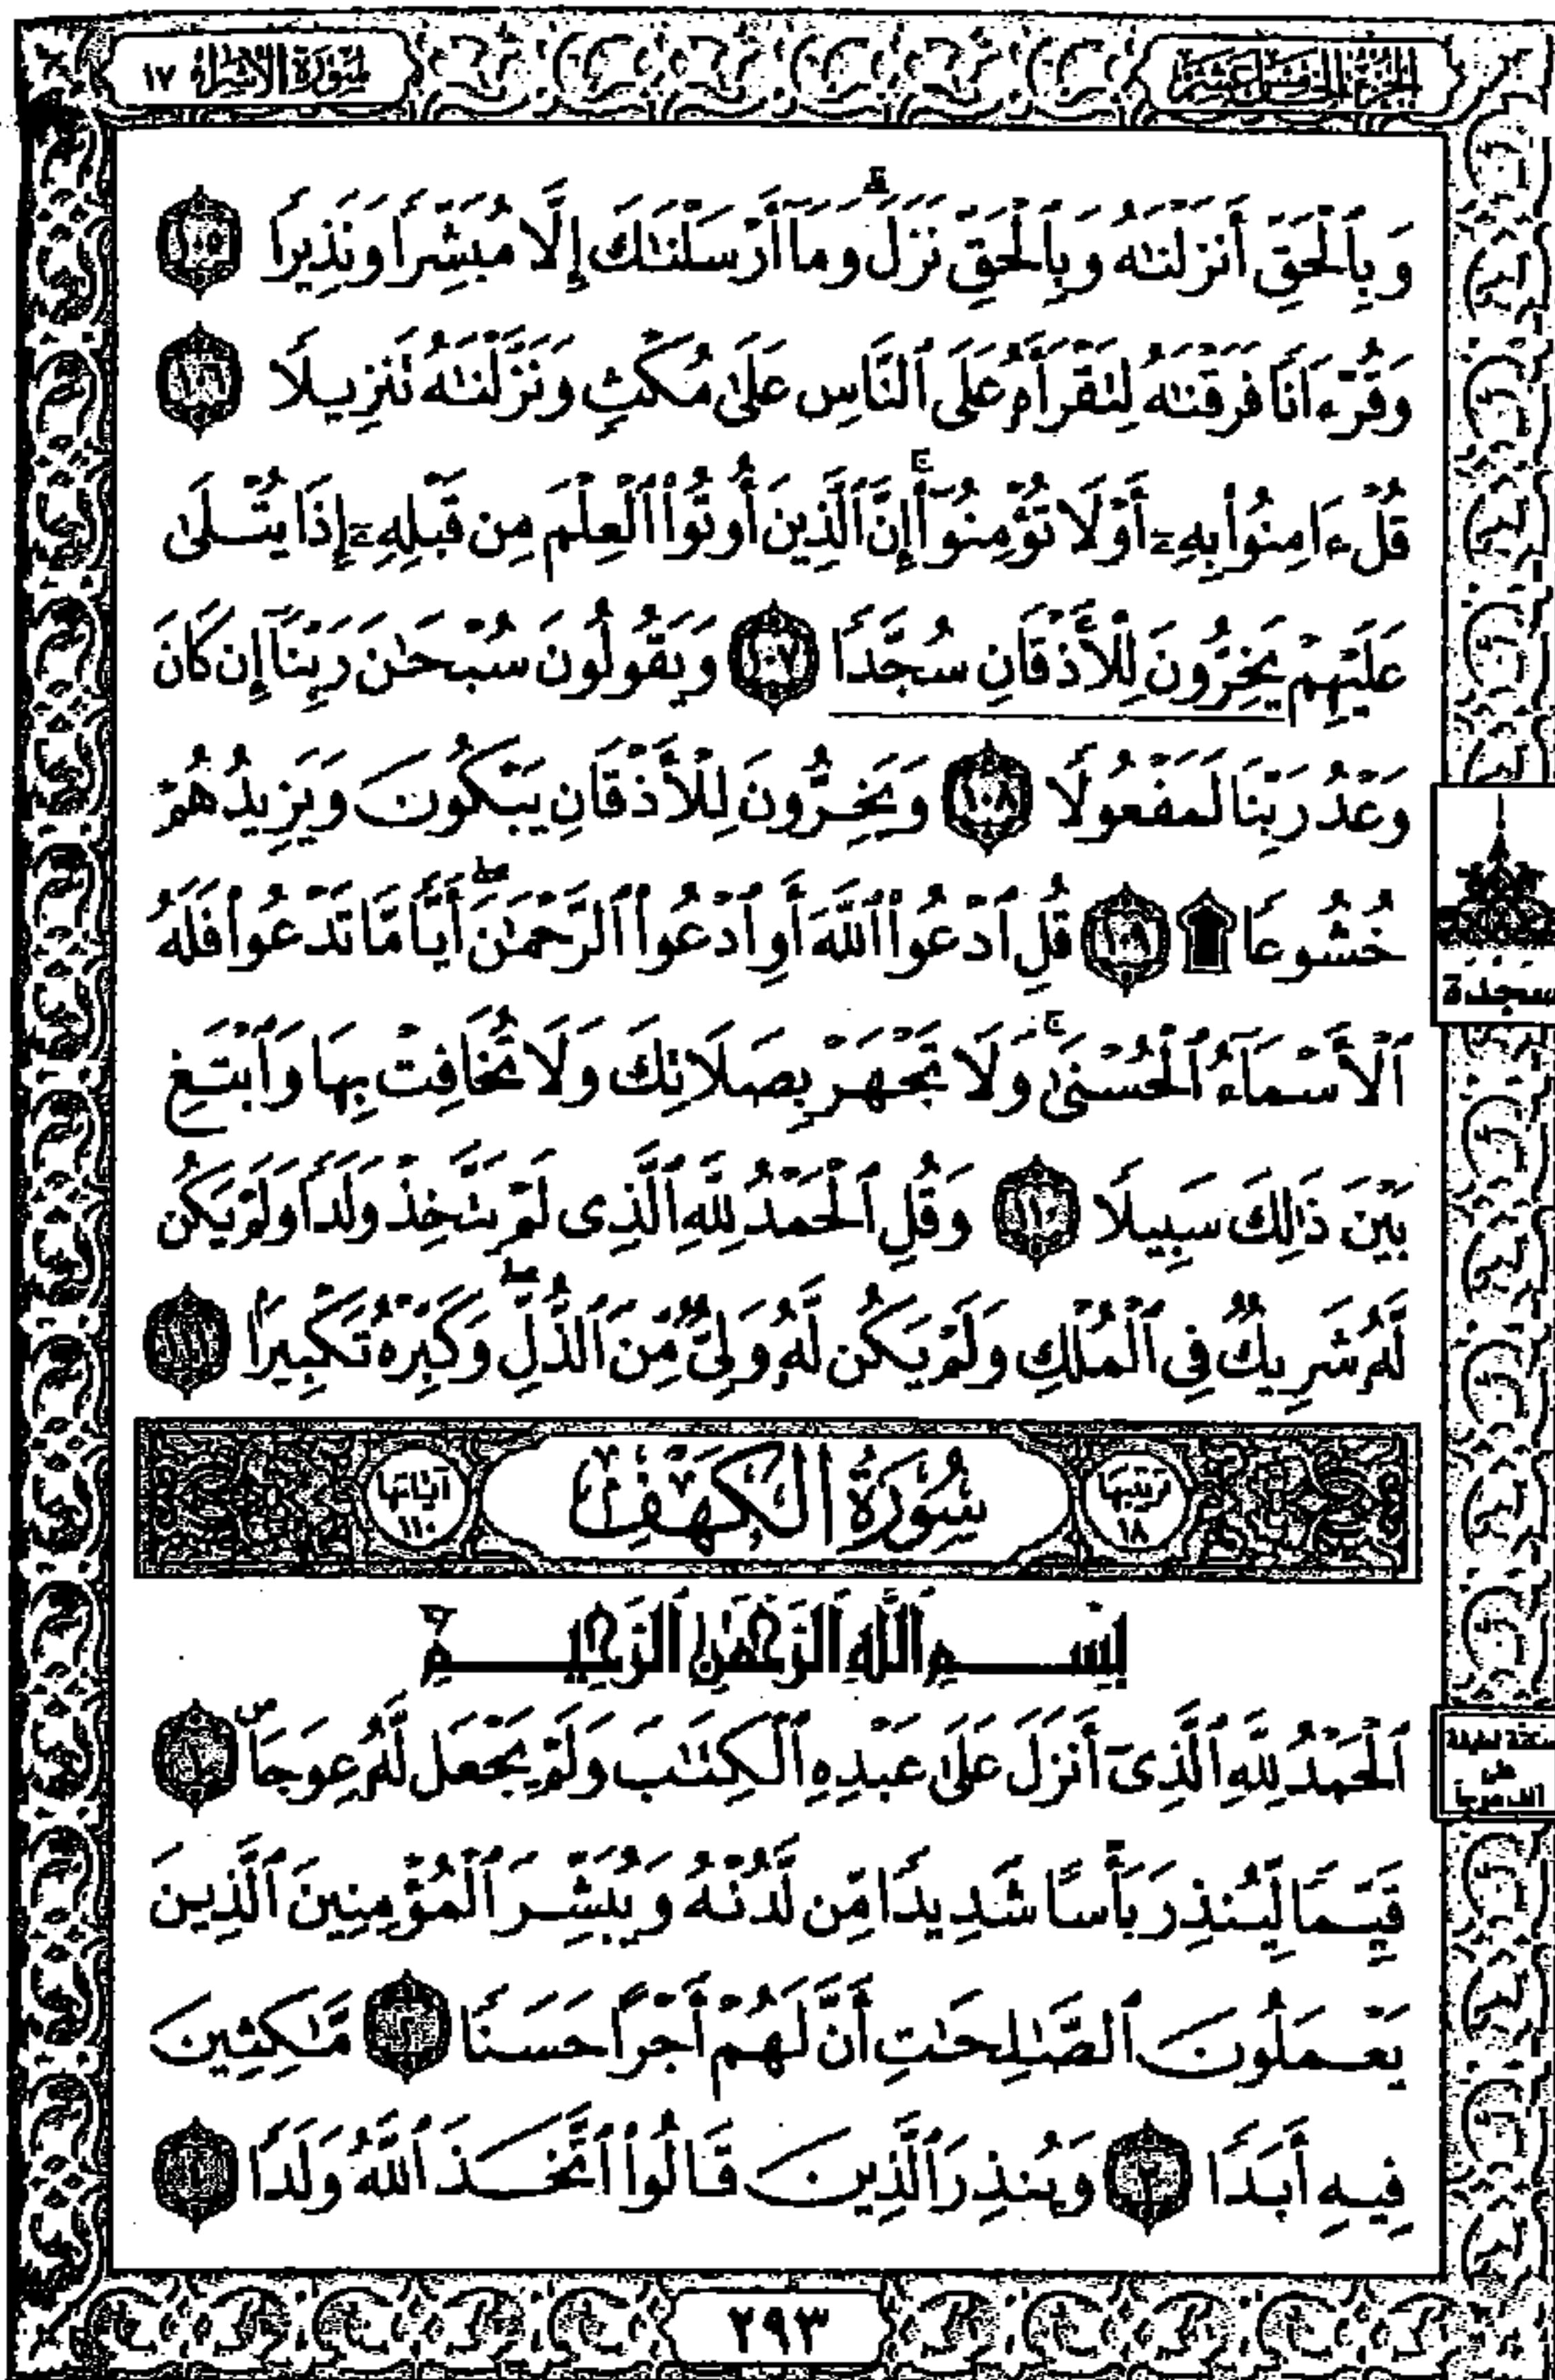 الجزء الخامس عشر
سورة الإسراء ١٧
وَبِٱلْحَقِّ أَنزَلْنَٰهُ وَبِٱلْحَقِّ نَزَلَ ۗ وَمَآ أَرْسَلْنَٰكَ إِلَّا مُبَشِّرًا وَنَذِيرًا ١٠٥
وَقُرْءَانًا فَرَقْنَٰهُ لِتَقْرَأَهُۥ عَلَى ٱلنَّاسِ عَلَىٰ مُكْثٍ وَنَزَّلْنَٰهُ تَنزِيلًا ١٠٦
قُلْ ءَامِنُوا۟ بِهِۦٓ أَوْ لَا تُؤْمِنُوٓا۟ ۚ إِنَّ ٱلَّذِينَ أُوتُوا۟ ٱلْعِلْمَ مِن قَبْلِهِۦٓ إِذَا يُتْلَىٰ
عَلَيْهِمْ يَخِرُّونَ لِلْأَذْقَانِ سُجَّدًا ١٠٧ وَيَقُولُونَ سُبْحَٰنَ رَبِّنَآ إِن كَانَ
وَعْدُ رَبِّنَا لَمَفْعُولًا ١٠٨ وَيَخِرُّونَ لِلْأَذْقَانِ يَبْكُونَ وَيَزِيدُهُمْ
خُشُوعًا ۩ ١٠٩ قُلِ ٱدْعُوا۟ ٱللَّهَ أَوِ ٱدْعُوا۟ ٱلرَّحْمَٰنَ ۖ أَيًّا مَّا تَدْعُوا۟ فَلَهُ
ٱلْأَسْمَآءُ ٱلْحُسْنَىٰ ۚ وَلَا تَجْهَرْ بِصَلَاتِكَ وَلَا تُخَافِتْ بِهَا وَٱبْتَغِ
بَيْنَ ذَٰلِكَ سَبِيلًا ١١٠ وَقُلِ ٱلْحَمْدُ لِلَّهِ ٱلَّذِى لَمْ يَتَّخِذْ وَلَدًا وَلَمْ يَكُن
لَّهُۥ شَرِيكٌ فِى ٱلْمُلْكِ وَلَمْ يَكُن لَّهُۥ وَلِىٌّ مِّنَ ٱلذُّلِّ ۖ وَكَبِّرْهُ تَكْبِيرًۢا ١١١
سجدة
ترتيبها ١٨
سُورَةُ الكَهْفِ
آياتها ١١٠
بِسْمِ ٱللَّهِ ٱلرَّحْمَٰنِ ٱلرَّحِيمِ
ٱلْحَمْدُ لِلَّهِ ٱلَّذِىٓ أَنزَلَ عَلَىٰ عَبْدِهِ ٱلْكِتَٰبَ وَلَمْ يَجْعَل لَّهُۥ عِوَجَاۜ ١
سكتة لطيفة
على
ألف عوجا
قَيِّمًا لِّيُنذِرَ بَأْسًا شَدِيدًا مِّن لَّدُنْهُ وَيُبَشِّرَ ٱلْمُؤْمِنِينَ ٱلَّذِينَ
يَعْمَلُونَ ٱلصَّٰلِحَٰتِ أَنَّ لَهُمْ أَجْرًا حَسَنًا ٢ مَّٰكِثِينَ
فِيهِ أَبَدًا ٣ وَيُنذِرَ ٱلَّذِينَ قَالُوا۟ ٱتَّخَذَ ٱللَّهُ وَلَدًا ٤
٢٩٣